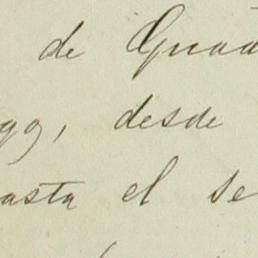 de Guad
go, desde
asta el se